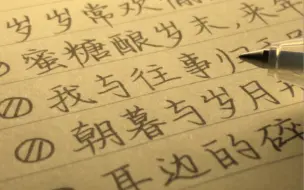 岁岁常欢愉
蜜糖酿岁末,来年
我与往事归于
朝暮与岁月
耳边的碎